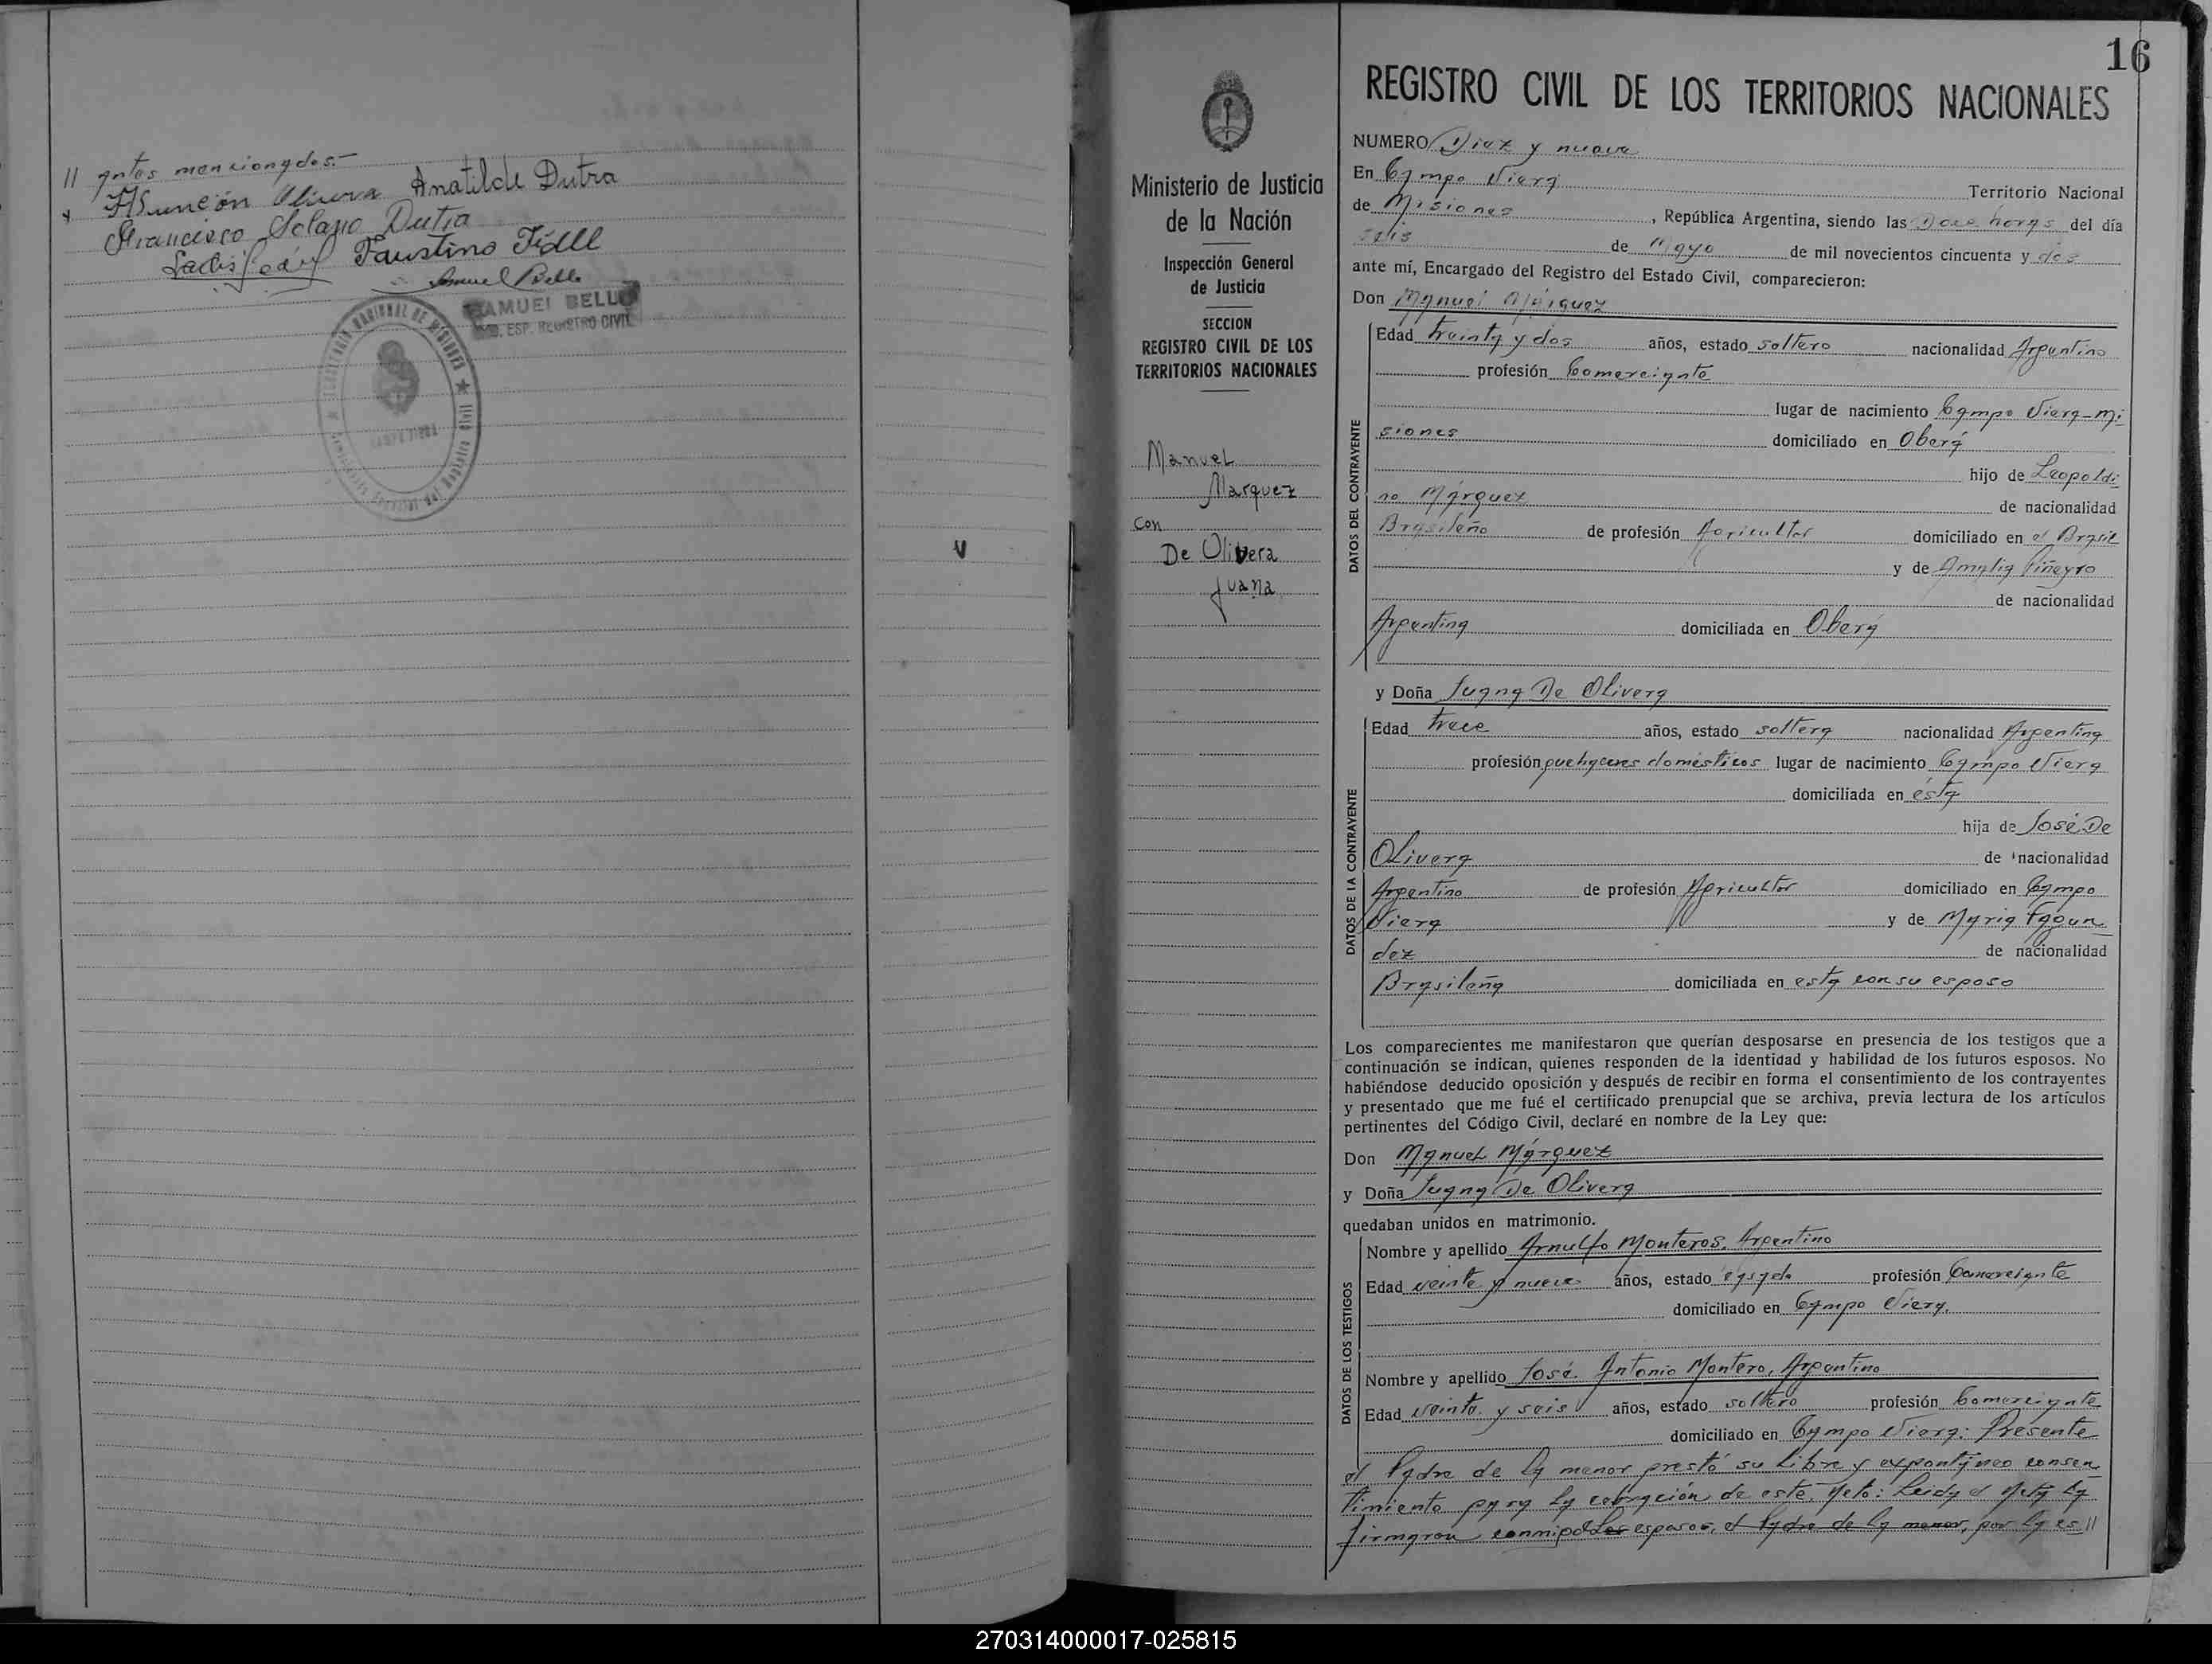 // antes mencionados.-
Asunción Olivera Anatilde Dutra
Francisco Solano Dutra
Faustino Fidell
Samuel Bello
SAMUEL BELLO
ESP. REGISTRO CIVIL
Ministerio de Justicia
de la Nación
Inspección General
de Justicia
SECCION
REGISTRO CIVIL DE LOS
TERRITORIOS NACIONALES
Manuel
Marquez
con
De Olivera
Juana
16
REGISTRO CIVIL DE LOS TERRITORIOS NACIONALES
NUMERO Diez y nueve
En Campo Viera Territorio Nacional
de Misiones, República Argentina, siendo las Doce horas del día
seis de Mayo de mil novecientos cincuenta y dos
ante mí, Encargado del Registro del Estado Civil, comparecieron:
Don Manuel Márquez
DATOS DEL CONTRAYENTE
Edad treinta y dos años, estado soltero nacionalidad Argentino
profesión Comerciante
lugar de nacimiento Campo Viera-Mi
siones domiciliado en Oberá
hijo de Leopoldi
no Márquez de nacionalidad
Brasileño de profesión Agricultor domiciliado en el Brasil
y de Amalia Piñeyro
de nacionalidad
Argentina domiciliada en Oberá
y Doña Juana De Olivera
DATOS DE LA CONTRAYENTE
Edad trece años, estado soltera nacionalidad Argentina
profesión quehaceres domésticos lugar de nacimiento Campo Viera
domiciliada en ésta
hija de José De
Olivera de nacionalidad
Argentino de profesión Agricultor domiciliado en Campo
Viera y de María Fagun
dez de nacionalidad
Brasileña domiciliada en esta con su esposo
Los comparecientes me manifestaron que querían desposarse en presencia de los testigos que a
continuación se indican, quienes responden de la identidad y habilidad de los futuros esposos. No
habiéndose deducido oposición y después de recibir en forma el consentimiento de los contrayentes
y presentado que me fué el certificado prenupcial que se archiva, previa lectura de los artículos
pertinentes del Código Civil, declaré en nombre de la Ley que:
Don Manuel Márquez
y Doña Juana De Olivera
quedaban unidos en matrimonio.
DATOS DE LOS TESTIGOS
Nombre y apellido Arnulfo Monteros, Argentino
Edad veinte y nueve años, estado casado profesión Comerciante
domiciliado en Campo Viera.
Nombre y apellido José Antonio Montero, Argentino
Edad veinte y seis años, estado soltero profesión Comerciante
domiciliado en Campo Viera: Presente
el Padre de la menor prestó su libre y expontáneo consen
timiento para la celebración de este Acto: Leida el Acta la
firmaron conmigo los esposos, el Padre de la menor, por la es//
270314000017-025815